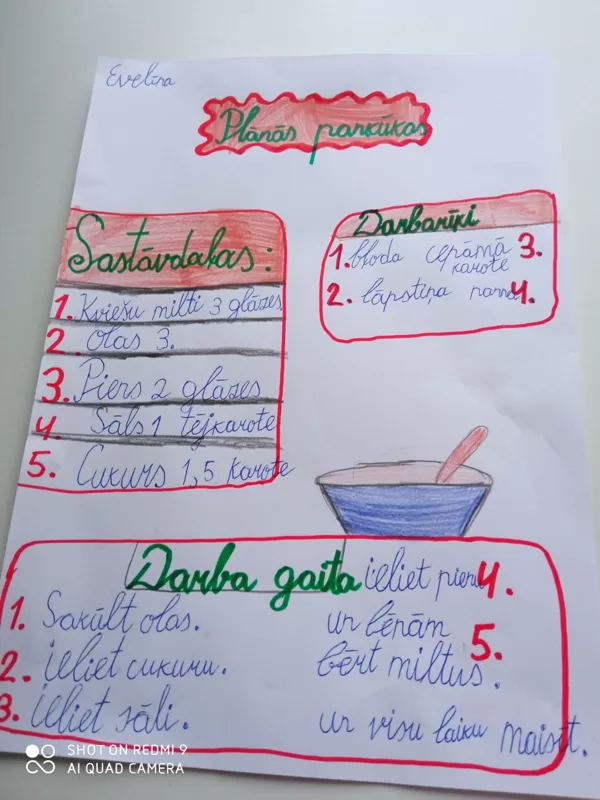 Evelīna
Plānās pankūkas
Sastāvdaļas:
1. Kviešu milti 3 glāzes
2. Olas 3.
3. Piens 2 glāzes
4. Sāls 1 tējkarote
5. Cukurs 1,5 karote
Darbarīki
1. bļoda cepāmā 3.
karote
2. lāpstiņa panna 4.
Darba gaita ieliet pienu 4.
1. Sakūlt olas.
un lēnām 5.
2. ieliet cukuru.
bērt miltus.
3. ieliet sāli.
un visu laiku maisīt.
SHOT ON REDMI 9
AI QUAD CAMERA